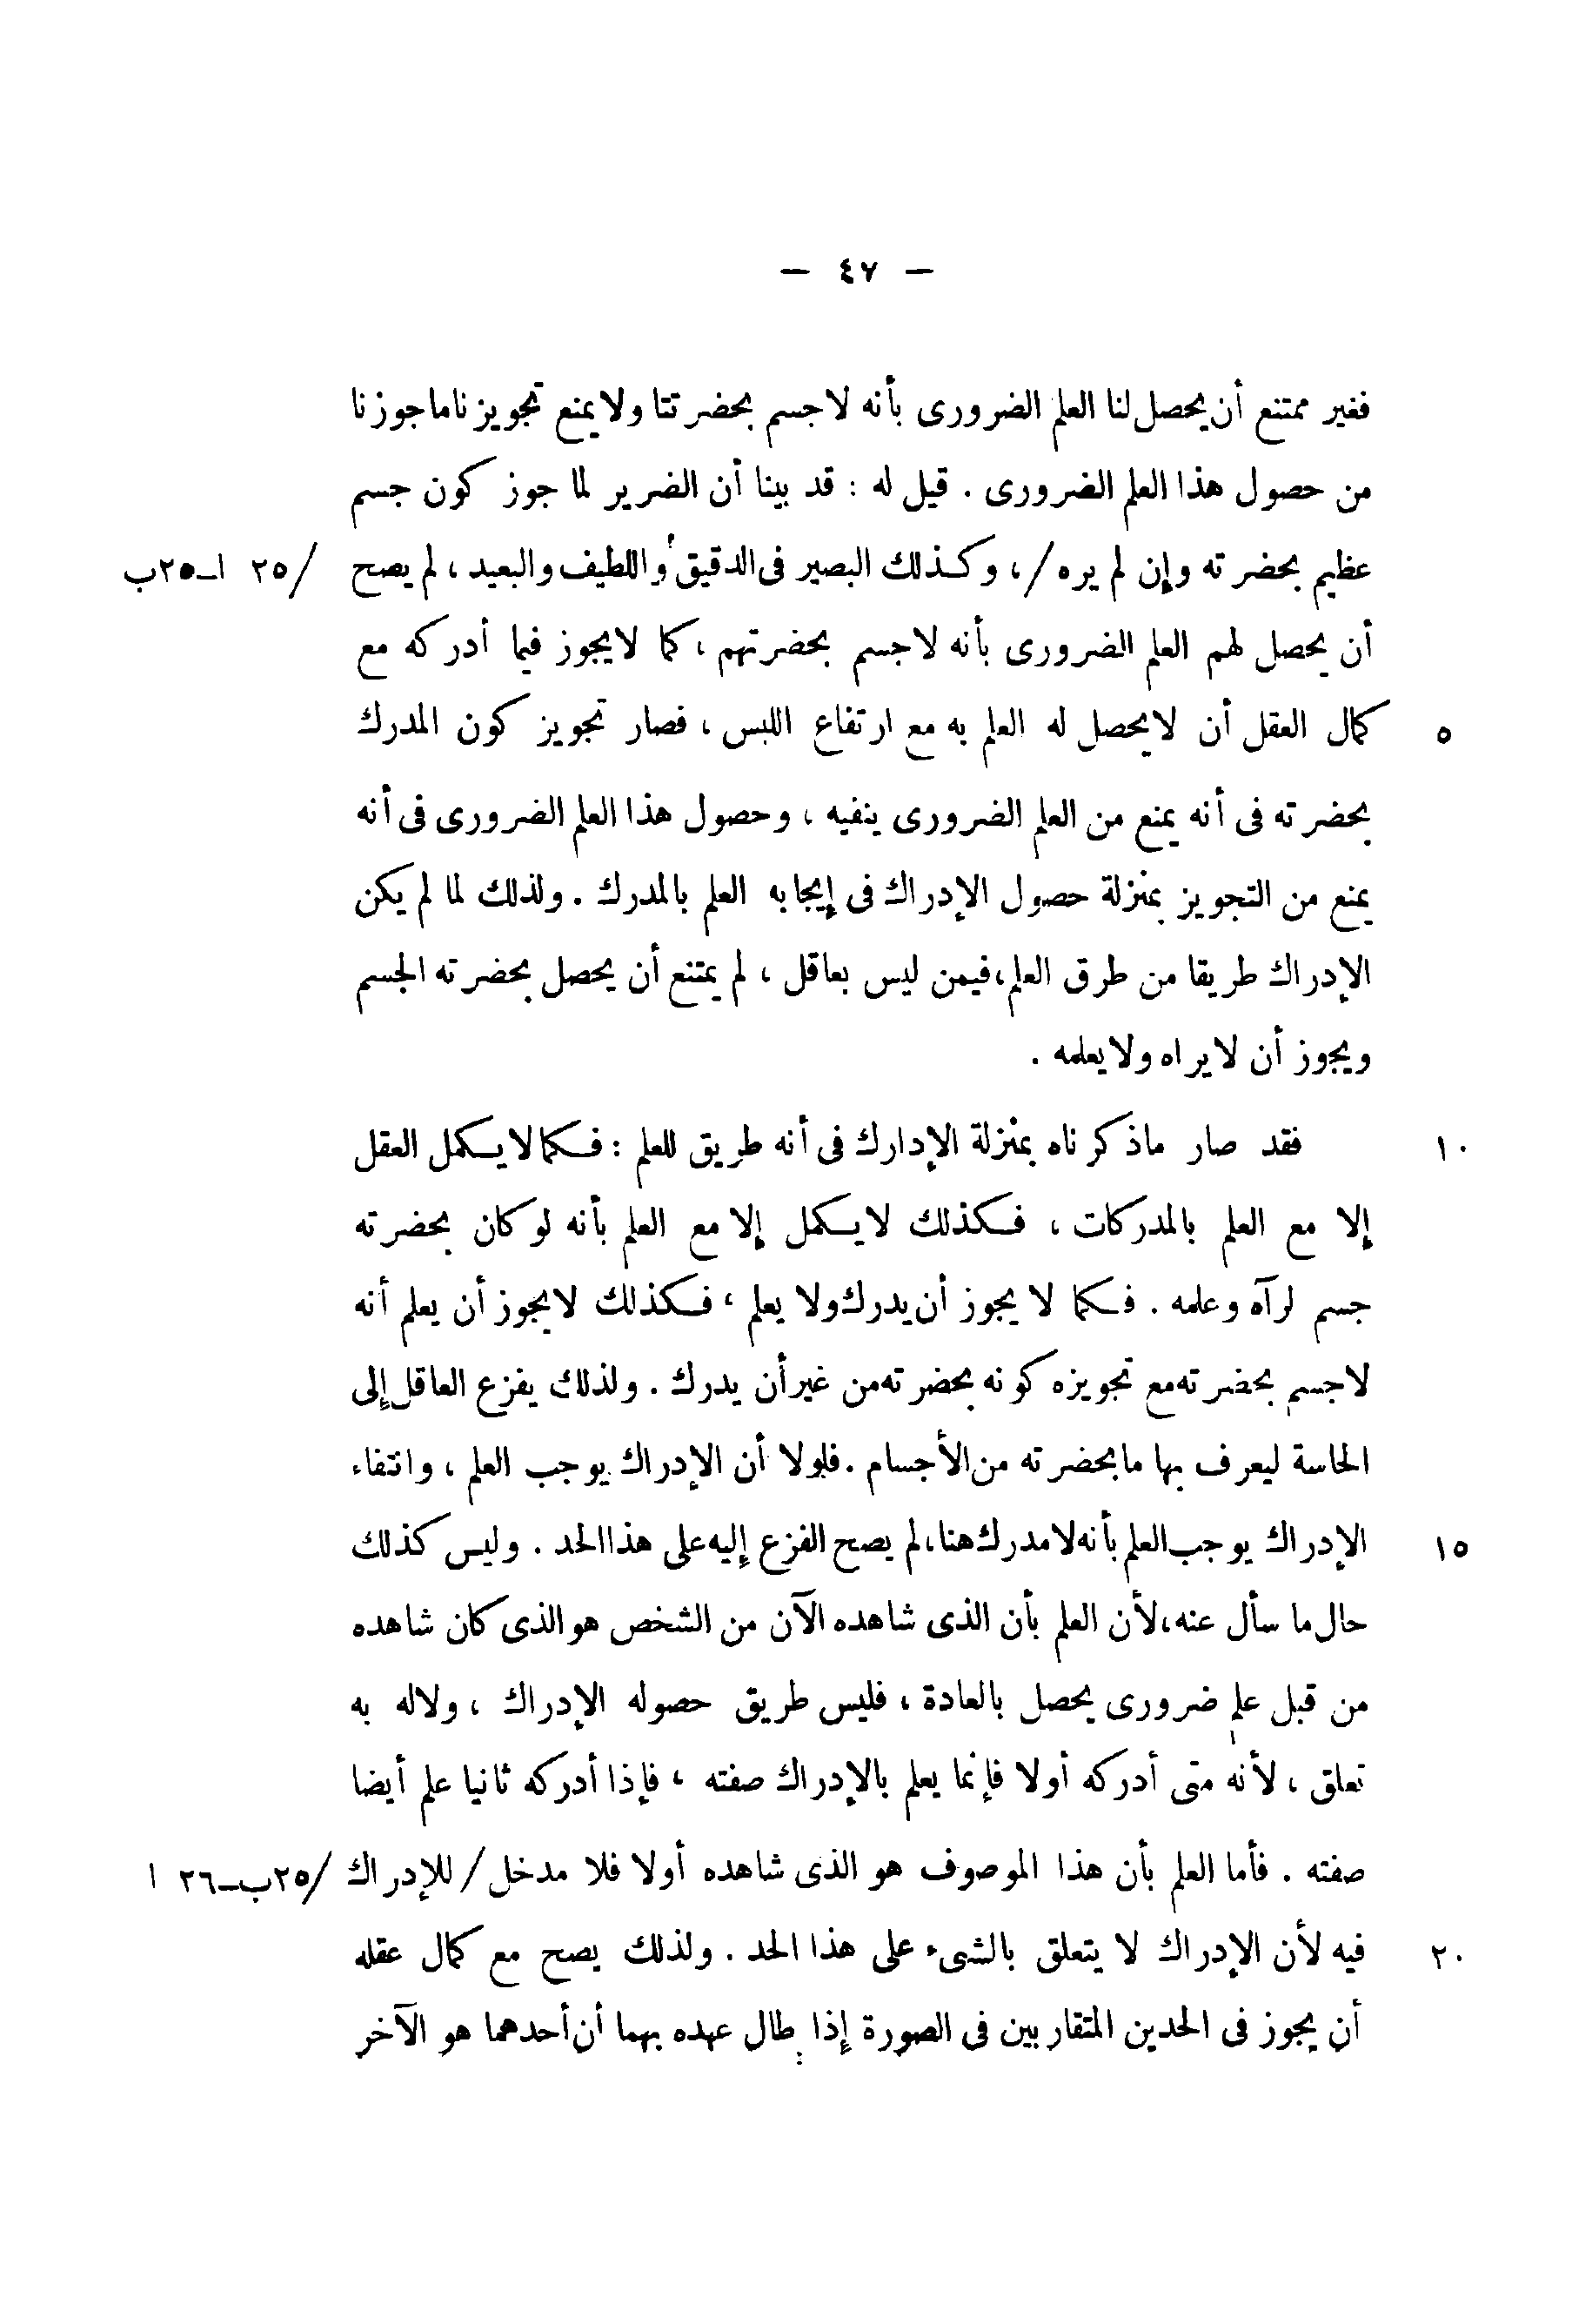 — ٤٧ —
فغير ممتنع أن يحصل لنا العلم الضرورى بأنه لا جسم بحضرتنا ولا يمنع تجويزنا ما جوزنا
من حصول هذا العلم الضرورى . قيل له : قد بينا أن الضرير لما جوز كون جسم
عظيم بحضرته وإن لم يره /، وكذلك البصير فى الدقيق واللطيف والبعيد ، لم يصح /٢٥ ا ـ ٢٥ب
أن يحصل لهم العلم الضرورى بأنه لا جسم بحضرتهم ، كما لا يجوز فيما أدركه مع
٥ كمال العقل أن لا يحصل له العلم به مع ارتفاع اللبس ، فصار تجويز كون المدرك
بحضرته فى أنه يمنع من العلم الضرورى ينفيه ، وحصول هذا العلم الضرورى فى أنه
يمنع من التجويز بمنزلة حصول الإدراك فى إيجابه العلم بالمدرك . ولذلك لما لم يكن
الإدراك طريقا من طرق العلم ، فيمن ليس بعاقل ، لم يمتنع أن يحصل بحضرته الجسم
ويجوز أن لا يراه ولا يعلمه .
١٠ فقد صار ما ذكرناه بمنزلة الإدارك فى أنه طريق للعلم : فكما لا يكمل العقل
إلا مع العلم بالمدركات ، فكذلك لا يكمل إلا مع العلم بأنه لو كان بحضرته
جسم لرآه وعلمه . فكما لا يجوز أن يدرك ولا يعلم ، فكذلك لا يجوز أن يعلم أنه
لا جسم بحضرته مع تجويزه كونه بحضرته من غير أن يدرك . ولذلك يفزع العاقل إلى
الحاسة ليعرف بها ما بحضرته من الأجسام . فلولا أن الإدراك يوجب العلم ، وانتفاء
١٥ الإدراك يوجب العلم بأنه لا مدرك هنا ، لم يصح الفزع إليه على هذا الحد . وليس كذلك
حال ما سأل عنه ، لأن العلم بأن الذى شاهده الآن من الشخص هو الذى كان شاهده
من قبل علم ضرورى يحصل بالعادة ، فليس طريق حصوله الإدراك ، ولا له به
تعلق ، لأنه متى أدركه أولا فإنما يعلم بالإدراك صفته ، فإذا أدركه ثانيا علم أيضا
صفته . فأما العلم بأن هذا الموصوف هو الذى شاهده أولا فلا مدخل / للإدراك /٢٥ب ـ ٢٦ ا
٢٠ فيه لأن الإدراك لا يتعلق بالشىء على هذا الحد . ولذلك يصح مع كمال عقله
أن يجوز فى الحدين المتقاربين فى الصورة إذا طال عهده بهما أن أحدهما هو الآخر